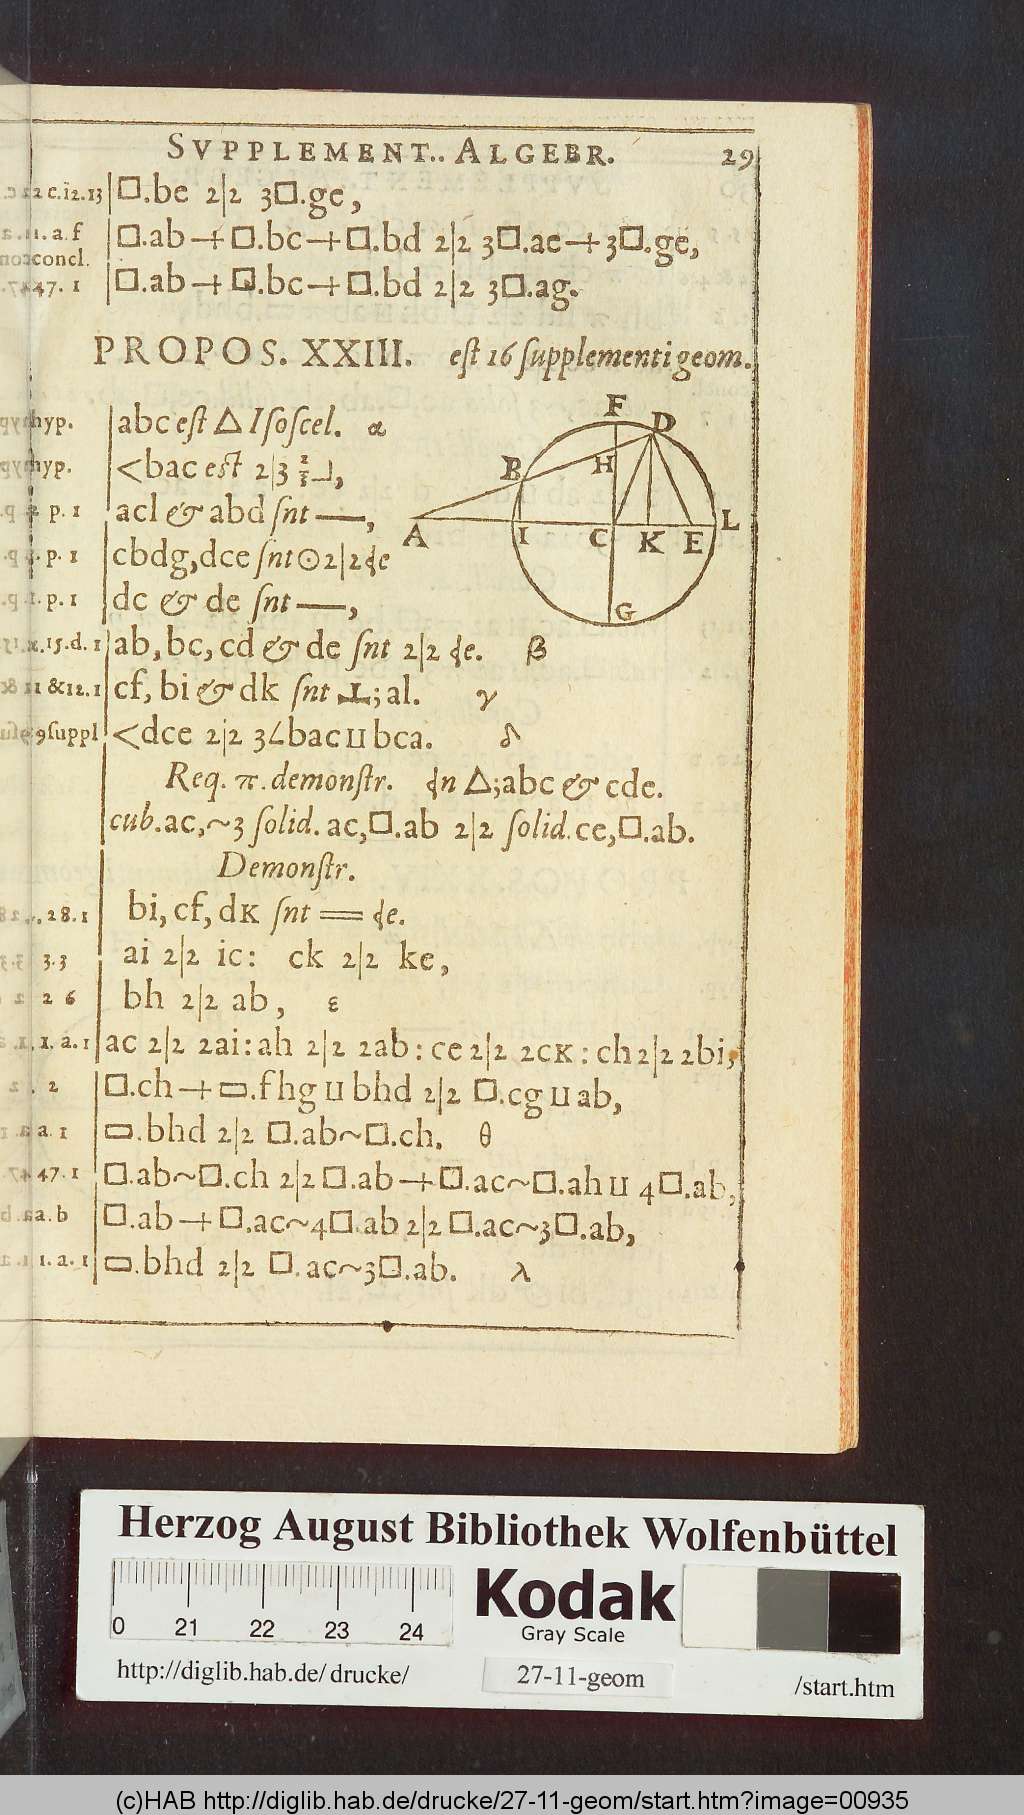 SVPPLEMENT.. ALGEBR. 29
12.13 □.be 2|2 3□.ge,
11. a. f □.ab+□.bc+□.bd 2|2 3□.ae+3□.ge,
concl.
47. 1 □.ab+□.bc+□.bd 2|2 3□.ag.
PROPOS. XXIII. eſt 16 ſupplementi geom.
hyp. abc eſt △ Iſoſcel. α
hyp. <bac eſt 2|3 ⅔_⅃,
p. 1 acl & abd ſnt —,
p. 1 cbdg, dce ſnt ⊙ 2|2 ɖe
1. p. 1 dc & de ſnt —,
15. d. 1 ab, bc, cd & de ſnt 2|2 ɖe. β
11 & 12. 1 cf, bi & dk ſnt ⊥; al. γ
9 ſuppl <dce 2|2 3∠bac ⊔ bca. δ
Req. π. demonſtr. ɖn △; abc & cde.
cub. ac, ~3 ſolid. ac, □.ab 2|2 ſolid. ce, □.ab.
Demonſtr.
28. 1 bi, cf, dK ſnt = ɖe.
3. 3 ai 2|2 ic: ck 2|2 ke,
2 6 bh 2|2 ab, ε
1. a. 1 ac 2|2 2ai: ah 2|2 2ab: ce 2|2 2cK: ch 2|2 2bi,
2 □.ch+▭.fhg ⊔ bhd 2|2 □.cg ⊔ ab,
a. 1 ▭.bhd 2|2 □.ab~□.ch. θ
47. 1 □.ab~□.ch 2|2 □.ab+□.ac~□.ah ⊔ 4□.ab,
a. b □.ab+□.ac~4□.ab 2|2 □.ac~3□.ab,
1. a. 1 ▭.bhd 2|2 □.ac~3□.ab. λ
F
D
B
H
A
I
C
K
E
L
G
Herzog August Bibliothek Wolfenbüttel
0 21 22 23 24
Kodak
Gray Scale
http://diglib.hab.de/drucke/ 27-11-geom /start.htm
(c)HAB http://diglib.hab.de/drucke/27-11-geom/start.htm?image=00935